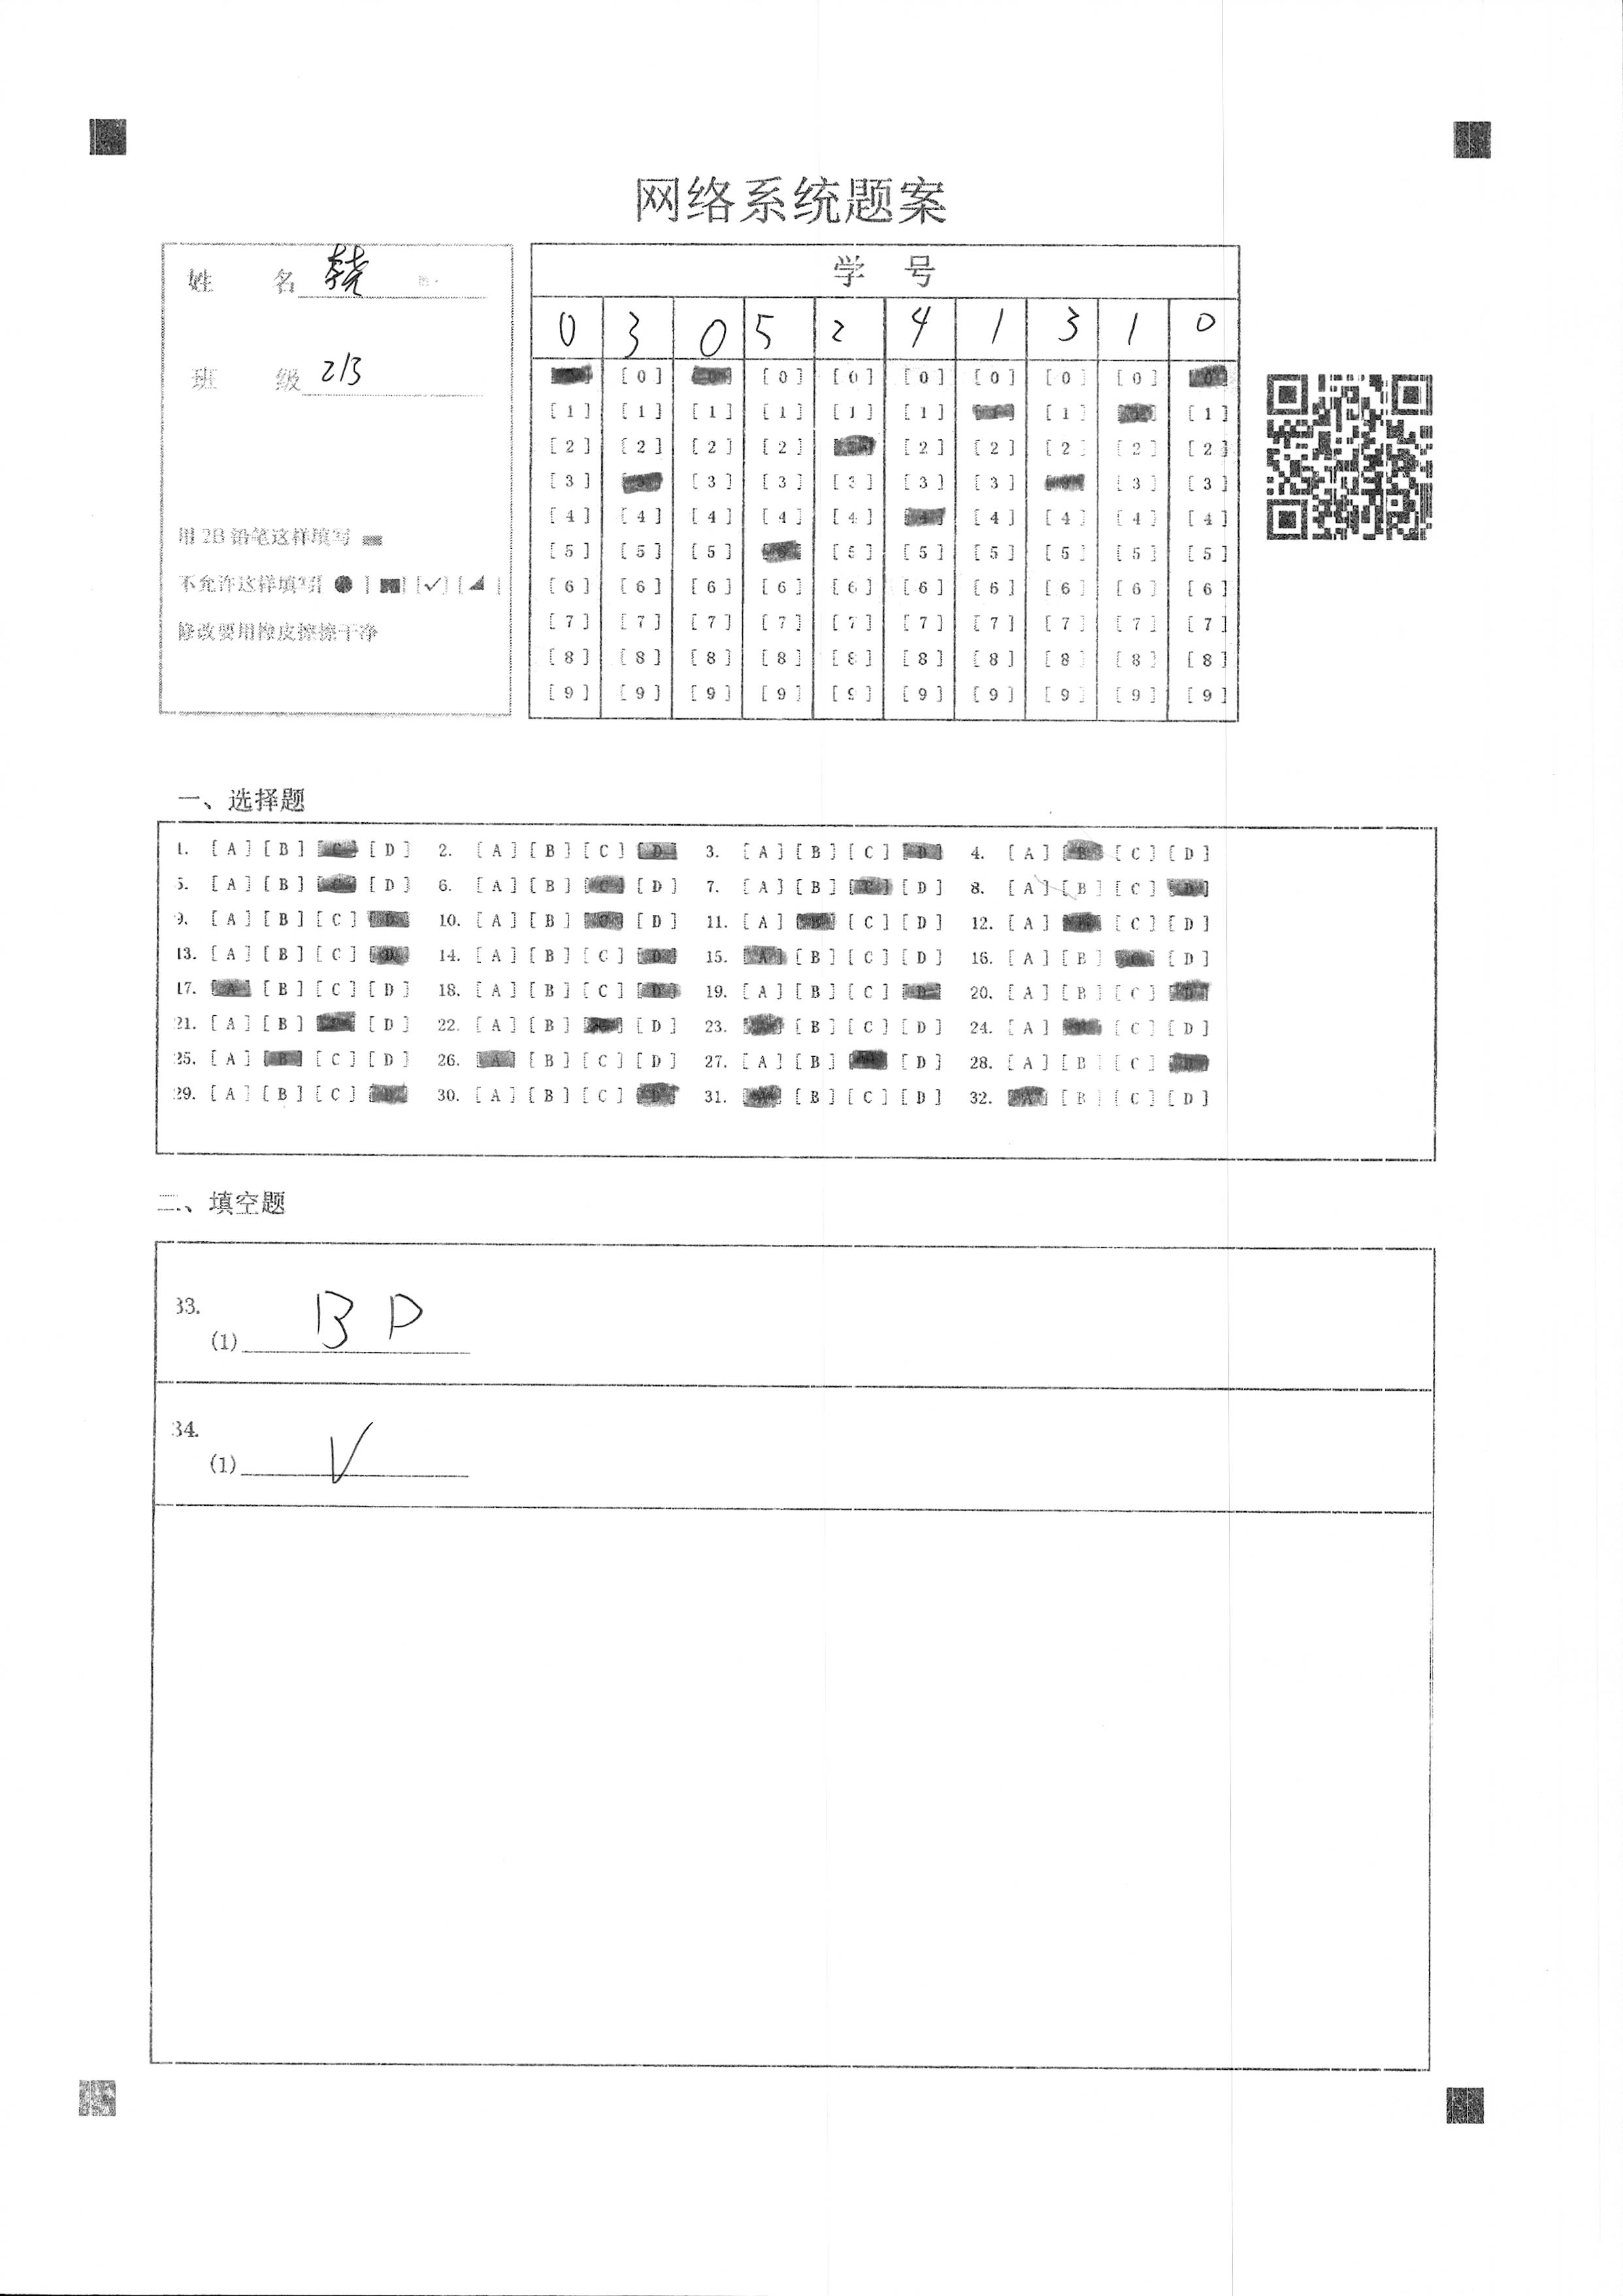 网络系统题案
姓 名
班 级 213
用 2B 铅笔这样填写
不允许这样填写[ ● ] [ ] [✓] [ ]
修改要用橡皮擦擦干净
学 号
0 3 0 5 2 4 1 3 1 0
[0] [0] [0] [0] [0] [0] [0]
[1] [1] [1] [1] [1] [1] [1] [1]
[2] [2] [2] [2] [2] [2] [2] [2] [2]
[3] [3] [3] [3] [3] [3] [3] [3]
[4] [4] [4] [4] [4] [4] [4] [4] [4]
[5] [5] [5] [5] [5] [5] [5] [5] [5]
[6] [6] [6] [6] [6] [6] [6] [6] [6] [6]
[7] [7] [7] [7] [7] [7] [7] [7] [7] [7]
[8] [8] [8] [8] [8] [8] [8] [8] [8] [8]
[9] [9] [9] [9] [9] [9] [9] [9] [9] [9]
一、选择题
1. [A] [B] [C] [D] 2. [A] [B] [C] [D] 3. [A] [B] [C] [D] 4. [A] [B] [C] [D]
5. [A] [B] [C] [D] 6. [A] [B] [C] [D] 7. [A] [B] [C] [D] 8. [A] [B] [C] [D]
9. [A] [B] [C] [D] 10. [A] [B] [C] [D] 11. [A] [B] [C] [D] 12. [A] [B] [C] [D]
13. [A] [B] [C] [D] 14. [A] [B] [C] [D] 15. [A] [B] [C] [D] 16. [A] [B] [C] [D]
17. [A] [B] [C] [D] 18. [A] [B] [C] [D] 19. [A] [B] [C] [D] 20. [A] [B] [C] [D]
21. [A] [B] [C] [D] 22. [A] [B] [C] [D] 23. [A] [B] [C] [D] 24. [A] [B] [C] [D]
25. [A] [B] [C] [D] 26. [A] [B] [C] [D] 27. [A] [B] [C] [D] 28. [A] [B] [C] [D]
29. [A] [B] [C] [D] 30. [A] [B] [C] [D] 31. [A] [B] [C] [D] 32. [A] [B] [C] [D]
二、填空题
33.
(1) B D
34.
(1) V